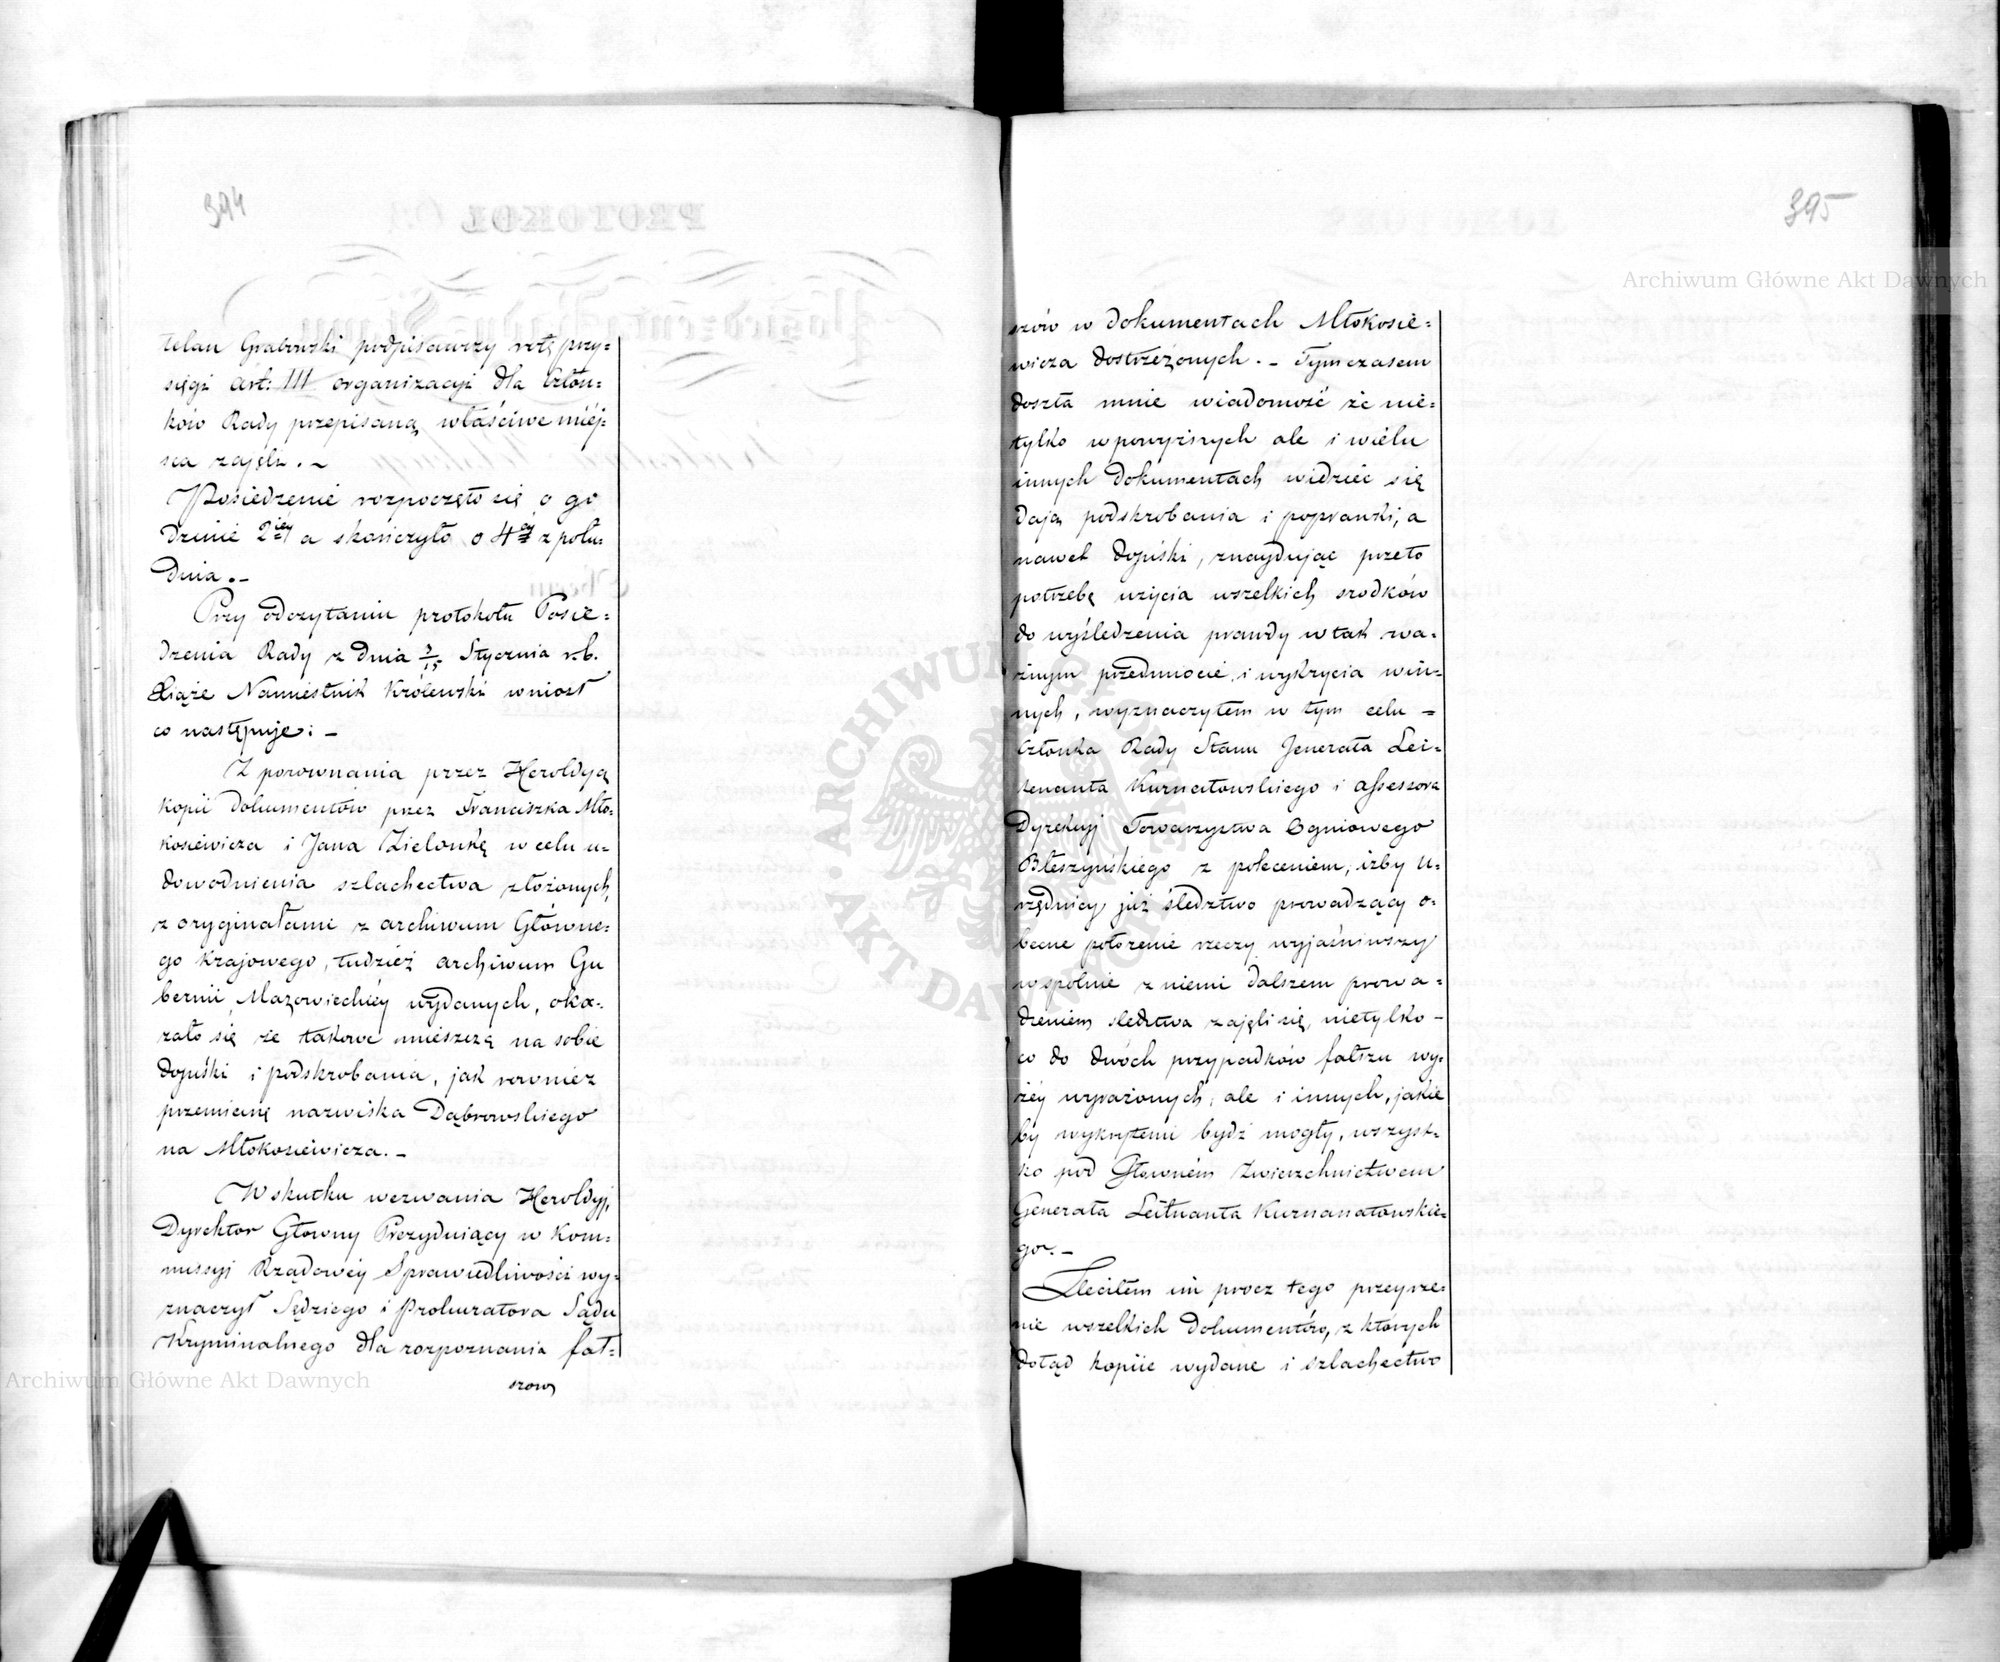 394
telan Grabowski podpisawszy rotę przy-
sięgi Art: III organizacyi dla Człon-
ków Rady przepisaną właściwe miéj-
sca zajęli. –
Posiedzenie rozpoczęło się o go
dzinie 2iéy a skończyło o 4éy z połu-
dnia. –
Przy odczytaniu protokołu Posie-
dzenia Rady z dnia 3/15 Stycznia r.b.
Xiąże Namiestnik Królewski wniosł
co następuje: –
Z porownania przez Heroldyą
kopii dokumentów przez Franciszka Mło-
kosiewicza i Jana Zielonkę w celu u-
dowodnienia szlachectwa złożonych,
z oryginałami z archiwum Główne-
go Krajowego, tudzież archiwum Gu
bernii Mazowieckiéy wydanych, oka-
zało się że takowe mieszczą na sobie
dopiski i podskrobania, jak rownież
przemianę nazwiska Dąbrowskiego
na Młokosiewicza. –
W skutku wezwania Heroldyj,
Dyrektor Głowny Prezyduiący w Kom-
missyj Rządowéy Sprawiedliwości wy-
znaczył Sędziego i Prokuratora Sądu
Kryminalnego dla rozpoznania fał-
szow
395
szów w dokumentach Młokosie-
wicza dostrzeżonych. – Tymczasem
doszła mnie wiadomość że nie-
tylko w powyższych ale i wielu
innych dokumentach widzieć się
dają podskrobania i poprawki, a
nawet dopiski, znaydując przeto
potrzebę użycia wszelkich srodków
do wyśledzenia prawdy w tak wa-
żnym przedmiocie i wykrycia win-
nych, wyznaczyłem w tym celu –
Członka Rady Stanu Jenerała Lei-
tenanta Kurnatowskiego i Assessora
Dyrekcyj Towarzystwa Ogniowego
Błeszyńskiego z poleceniem, iżby U-
rzędnicy już śledztwo prowadzący o-
becne położenie rzeczy wyjaśniwszy
wspolnie z niemi dalszem prowa-
dzeniem sledztwa zajęli się, nietylko –
co do dwóch przypadków fałszu wy-
żéy wyrażonych, ale i innych, jakie
by wykrytemi bydź mogły, wszyst-
ko pod Głowném Zwierzchnictwem
Generała Leitnanta Kurnanatowskie-
go. –
Zleciłem im procz tego przeyrze-
nie wszelkich dokumentów, z których
dotąd kopiie wydane i szlachectwo
Archiwum Główne Akt Dawnych
Archiwum Główne Akt Dawnych
ARCHIWUM GŁÓWNE AKT DAWNYCH